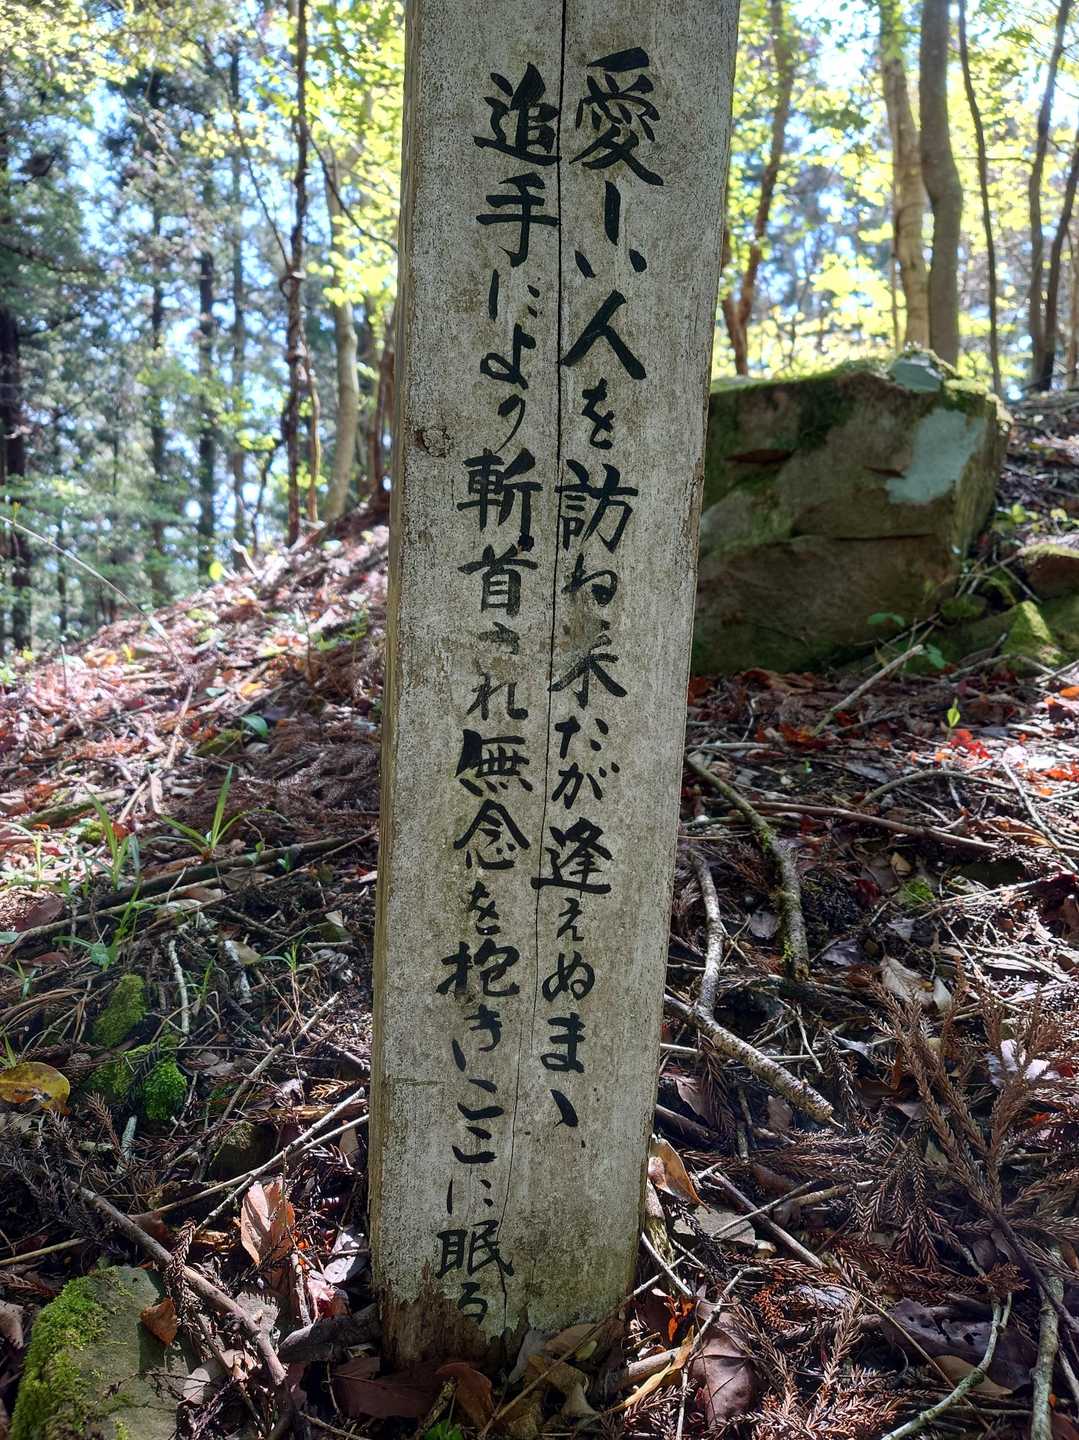 愛しい人を訪ね来たが逢えぬまゝ
追手により斬首され無念を抱きここに眠る